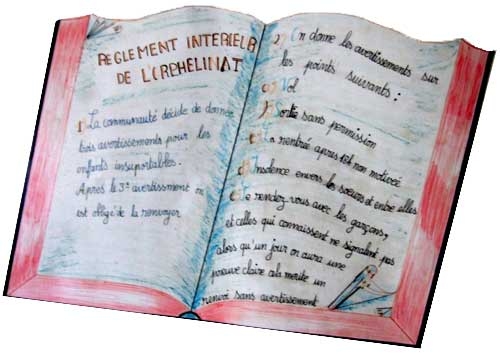 REGLEMENT INTERIEUR
DE L'ORPHELINAT
1) La communauté décide de donner
trois avertissements pour les
enfants insuportables.
Apres le 3e avertissment on
est obligé de la renvoyer
2) On donne les avertissements sur
les points suivants:
a) Vol
b) Sortie sans permission
c) La rentrée apres 18h non motivée
d) Insolence envers les soeurs et entre elles
e) Le rendez-vous avec les garçons,
et celles qui connaissent ne signalent pas
alors qu'un jour on aura une
preuve claire cela merite un
renvoi sans avertissement